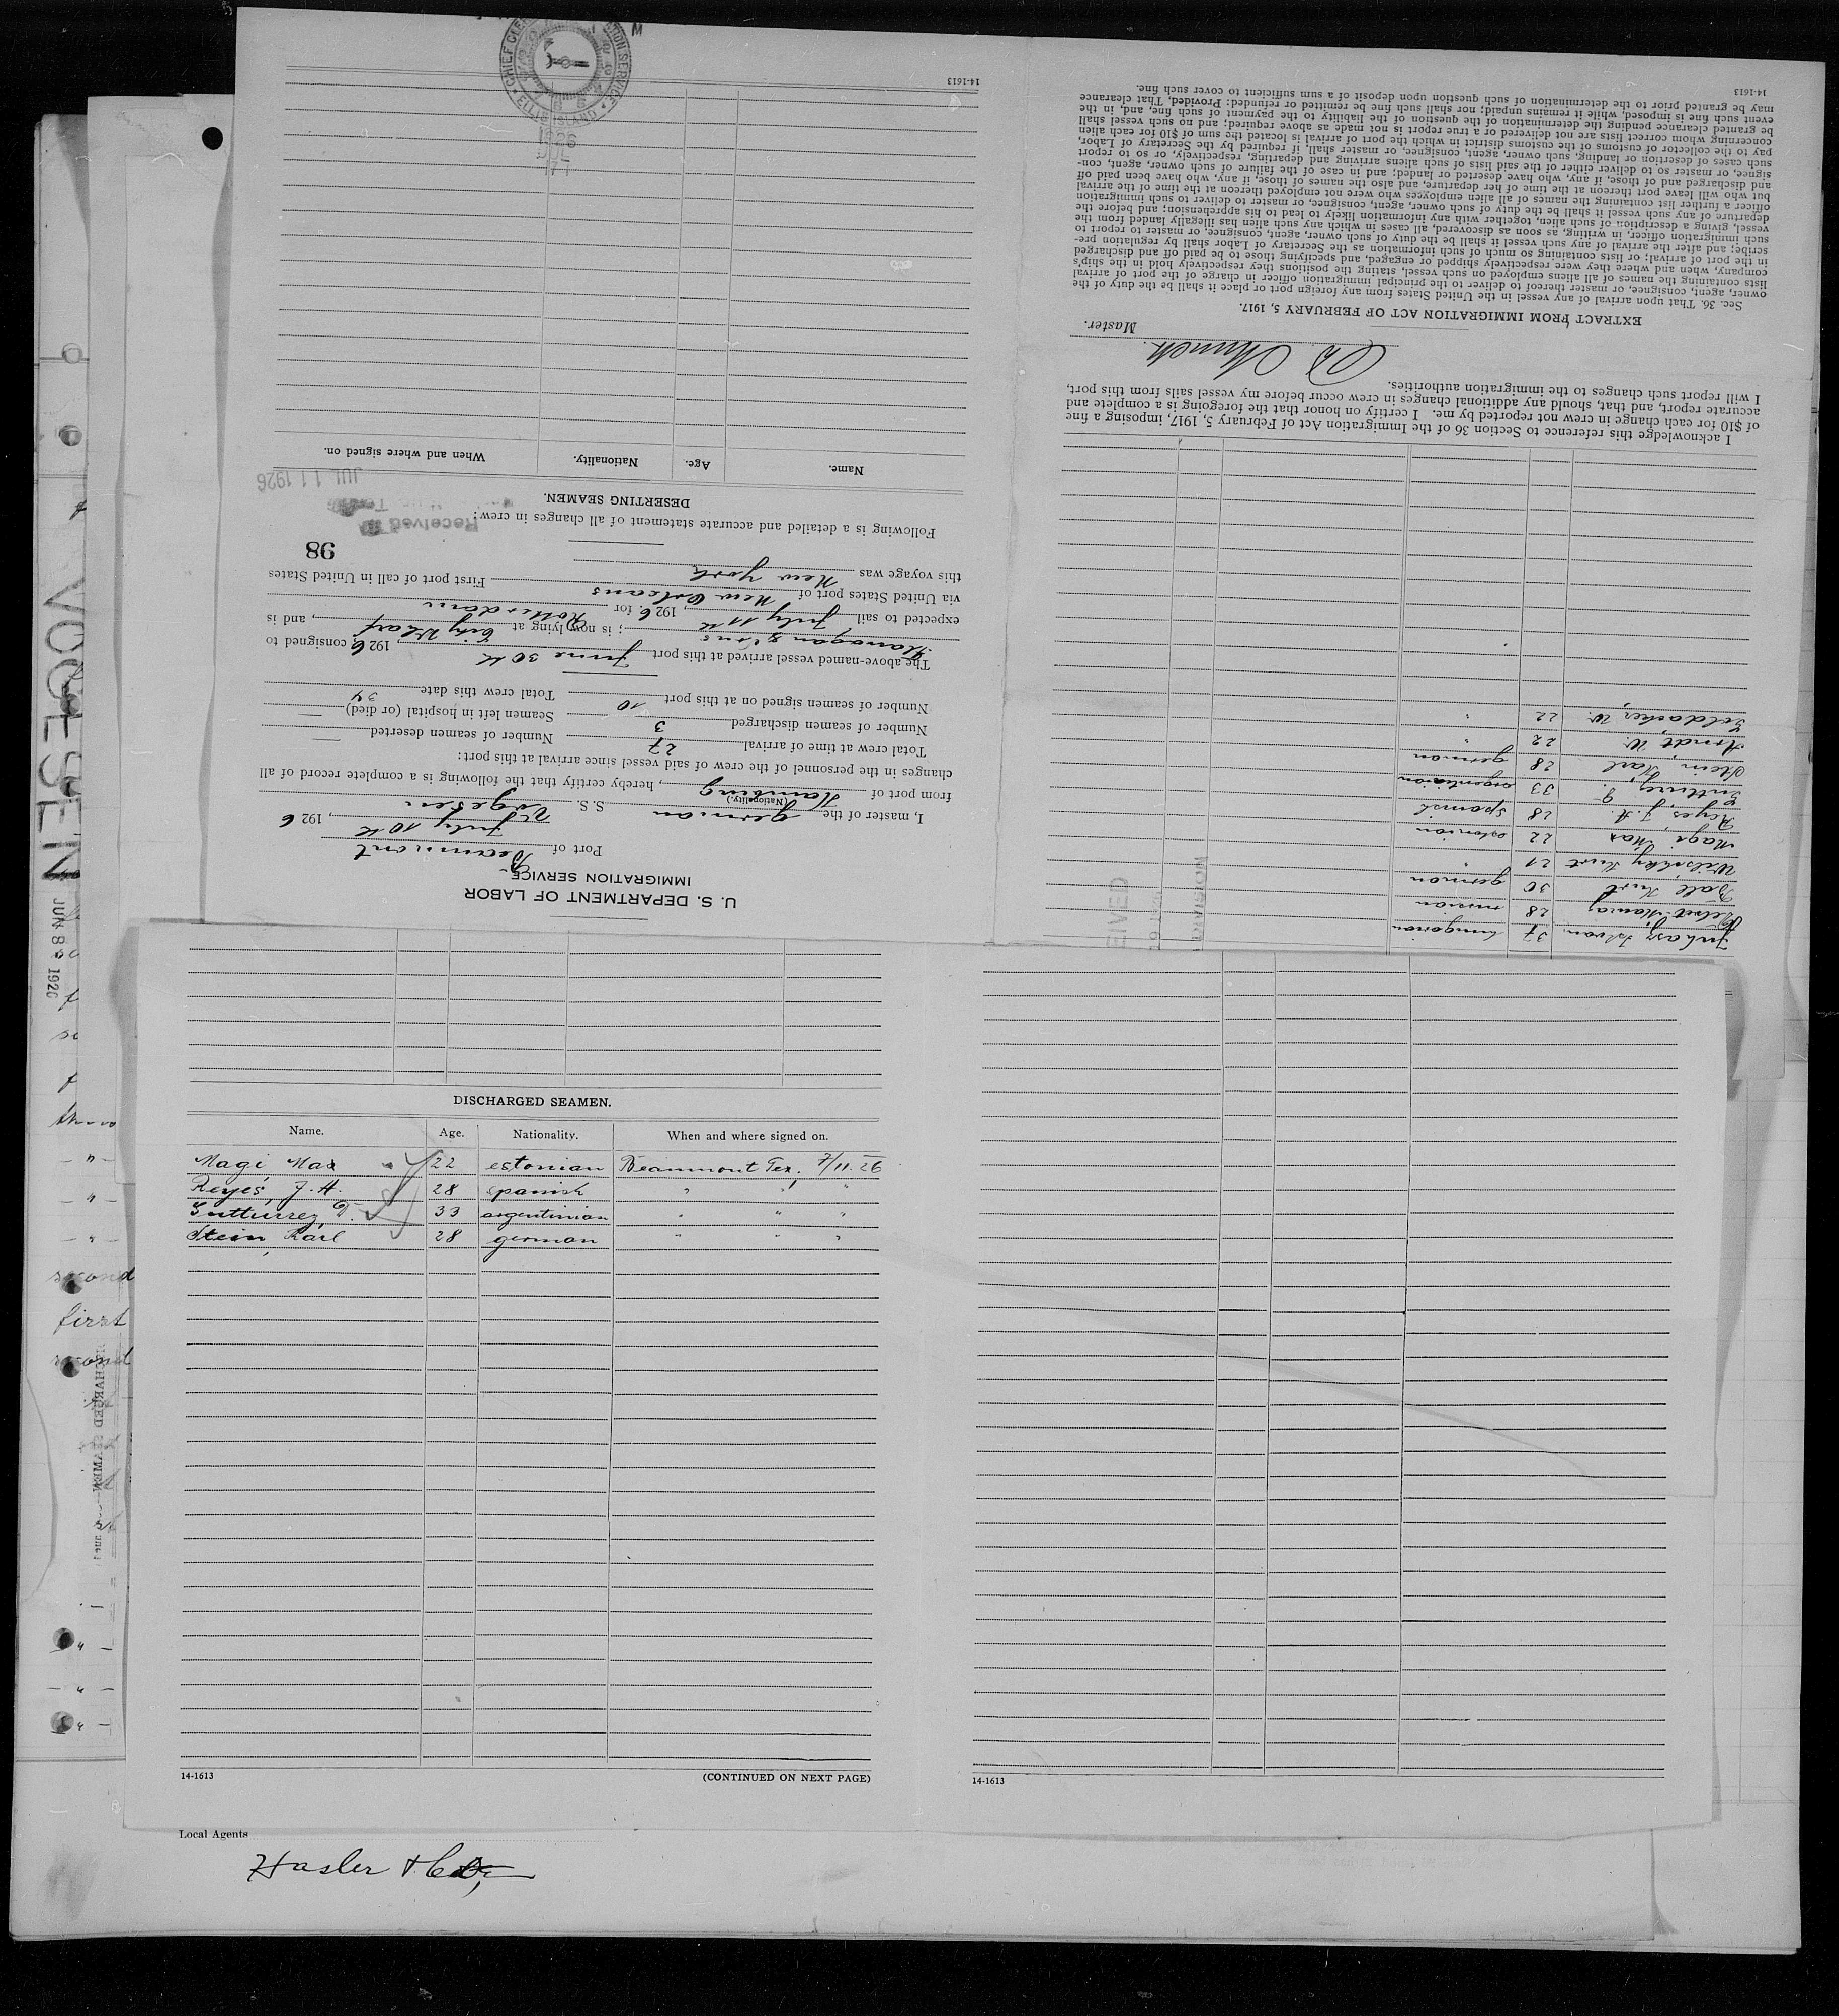 U. S. DEPARTMENT OF LABOR
IMMIGRATION SERVICE
Port of Beaumont
July 10th, 1926
I, master of the german S. S. Vogesen
(Nationality.)
from port of Hamburg, hereby certify that the following is a complete record of all
changes in the personnel of the crew of said vessel since arrival at this port:
Total crew at time of arrival 27 Number of seamen deserted —
Number of seamen discharged 3 Seamen left in hospital (or died) —
Number of seamen signed on at this port 10 Total crew this date 34
The above-named vessel arrived at this port June 30th, 1926 consigned to
; is now lying at City Wharf, and is
expected to sail July 11th, 1926. for Rotterdam
via United States port of New Orleans First port of call in United States
this voyage was New York
98
Following is a detailed and accurate statement of all changes in crew:
Received
DESERTING SEAMEN.
JUL 11 1926
Name. Age. Nationality. When and where signed on.
14-1613
CHIEF CLERK
ELLIS ISLAND
1926
JUL
17
Juhasz Istvan 37 hungarian
28 russian
Kurt 30 german
Kurt 21 "
Magi Max 22 estonian
Reyes, J. A. 28 spanish
33 argentinian
Stein, Karl 28 german
Arndt, W. 22 "
Goldacker, W. 22 "
I acknowledge this reference to Section 36 of the Immigration Act of February 5, 1917, imposing a fine
of $10 for each change in crew not reported by me. I certify on honor that the foregoing is a complete and
accurate report, and that, should any additional changes in crew occur before my vessel sails from this port,
I will report such changes to the immigration authorities.
Master.
EXTRACT FROM IMMIGRATION ACT OF FEBRUARY 5, 1917.
Sec. 36. That upon arrival of any vessel in the United States from any foreign port or place it shall be the duty of the
owner, agent, consignee, or master thereof to deliver to the principal immigration officer in charge of the port of arrival
lists containing the names of all aliens employed on such vessel, stating the positions they respectively hold in the ship's
company, when and where they were respectively shipped or engaged, and specifying those to be paid off and discharged
in the port of arrival; or lists containing so much of such information as the Secretary of Labor shall by regulation pre-
scribe; and after the arrival of any such vessel it shall be the duty of such owner, agent, consignee, or master to report to
such immigration officer, in writing, as soon as discovered, all cases in which any such alien has illegally landed from the
vessel, giving a description of such alien, together with any information likely to lead to his apprehension; and before the
departure of any such vessel it shall be the duty of such owner, agent, consignee, or master to deliver to such immigration
officer a further list containing the names of all alien employees who were not employed thereon at the time of the arrival
but who will leave port thereon at the time of her departure, and also the names of those, if any, who have been paid off
and discharged and of those, if any, who have deserted or landed; and in case of the failure of such owner, agent, con-
signee, or master so to deliver either of the said lists of such aliens arriving and departing, respectively, or so to report
such cases of desertion or landing, such owner, agent, consignee, or master shall, if required by the Secretary of Labor,
pay to the collector of customs of the customs district in which the port of arrival is located the sum of $10 for each alien
concerning whom correct lists are not delivered or a true report is not made as above required; and no such vessel shall
be granted clearance pending the determination of the question of the liability to the payment of such fine, and, in the
event such fine is imposed, while it remains unpaid; nor shall such fine be remitted or refunded: Provided, That clearance
may be granted prior to the determination of such question upon deposit of a sum sufficient to cover such fine.
14-1613
VOGESEN
DISCHARGED SEAMEN.
Name. Age. Nationality. When and where signed on.
Magi, Max 22 estonian Beaumont Tex. 7/11. 26
Reyes, J. A. 28 spanish " " "
33 argentinian " " "
Stein, Karl 28 german " " "
14-1613 (CONTINUED ON NEXT PAGE)
14-1613
second
first
second
Local Agents
Hasler & Co.,